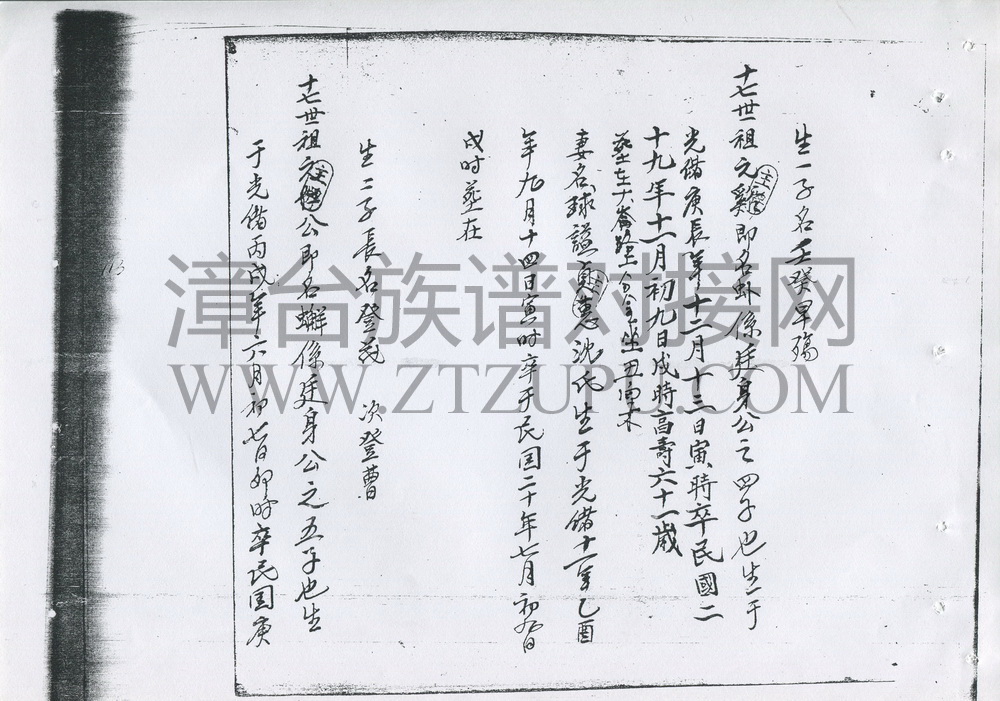 生一子名壬癸早殤
十七世祖元雞即名 係廷身公之四子也生于
光緒庚辰年十二月十三日寅時卒民國二
十九年十一月初九日戌時高壽六十一歲
坐丑向未
妻名球謚 惠沈氏生于光緒十一年乙酉
年九月十四日寅时卒于民国二十年七月初九日
戌时塟在
生二子長名登茂 次登曹
十七世祖元 公即名 係廷身公之五子也生
于光緒丙戌年六月初七日卯时卒民国庚
漳台族谱对接网
WWW.ZTZUPU.COM
113